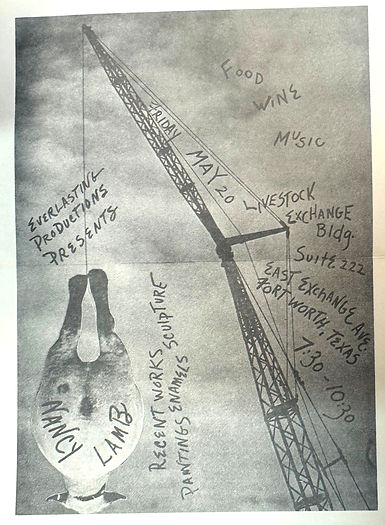 FOOD
WINE
MUSIC
FRIDAY
MAY 20
LIVESTOCK
EXCHANGE
Bldg.
SUITE 222
EAST EXCHANGE AVE.
FORT WORTH, TEXAS
7:30 - 10:30
EVERLASTING
PRODUCTIONS
PRESENTS
RECENT WORKS SCULPTURE
PAINTINGS ENAMELS
NANCY
LAMB